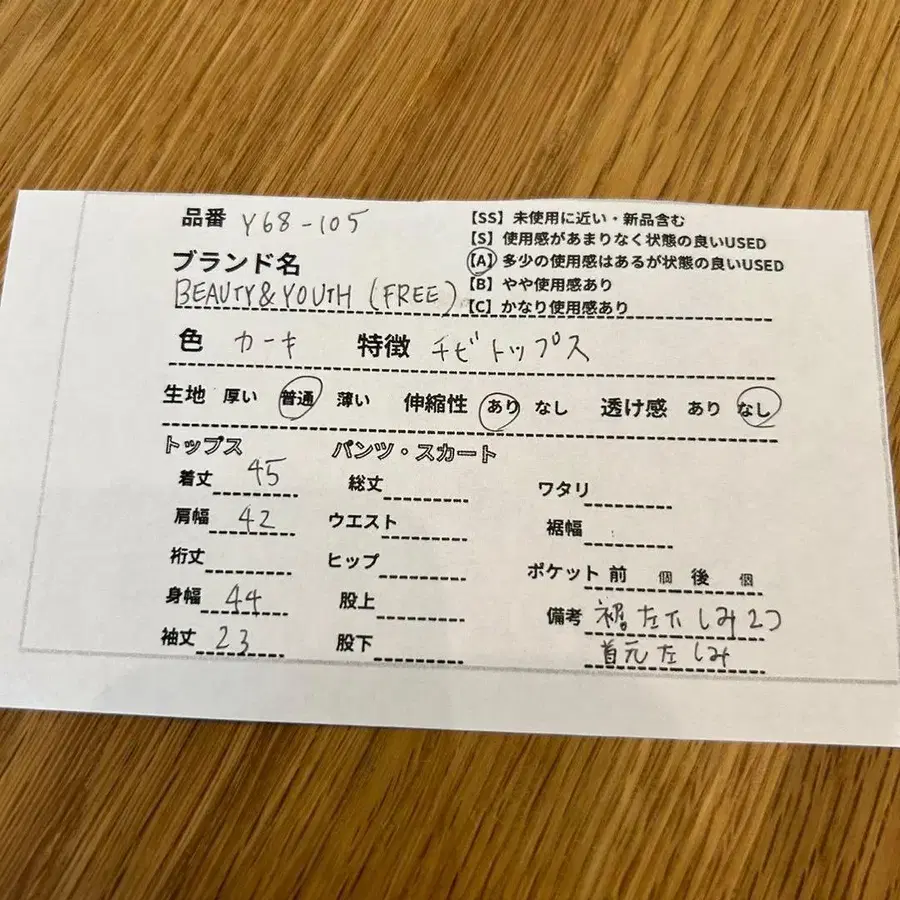 品番 Y68-105
【SS】未使用に近い・新品含む
【S】使用感があまりなく状態の良いUSED
【A】多少の使用感はあるが状態の良いUSED
【B】やや使用感あり
【C】かなり使用感あり
ブランド名
BEAUTY&YOUTH (FREE)
色 カーキ 特徴 チビトップス
生地 厚い 普通 薄い 伸縮性 あり なし 透け感 あり なし
トップス パンツ・スカート
着丈 45 総丈 ワタリ
肩幅 42 ウエスト 裾幅
裄丈 ヒップ ポケット 前 個 後 個
身幅 44 股上 備考 裾左下しみ2つ
袖丈 23 股下 首元左しみ